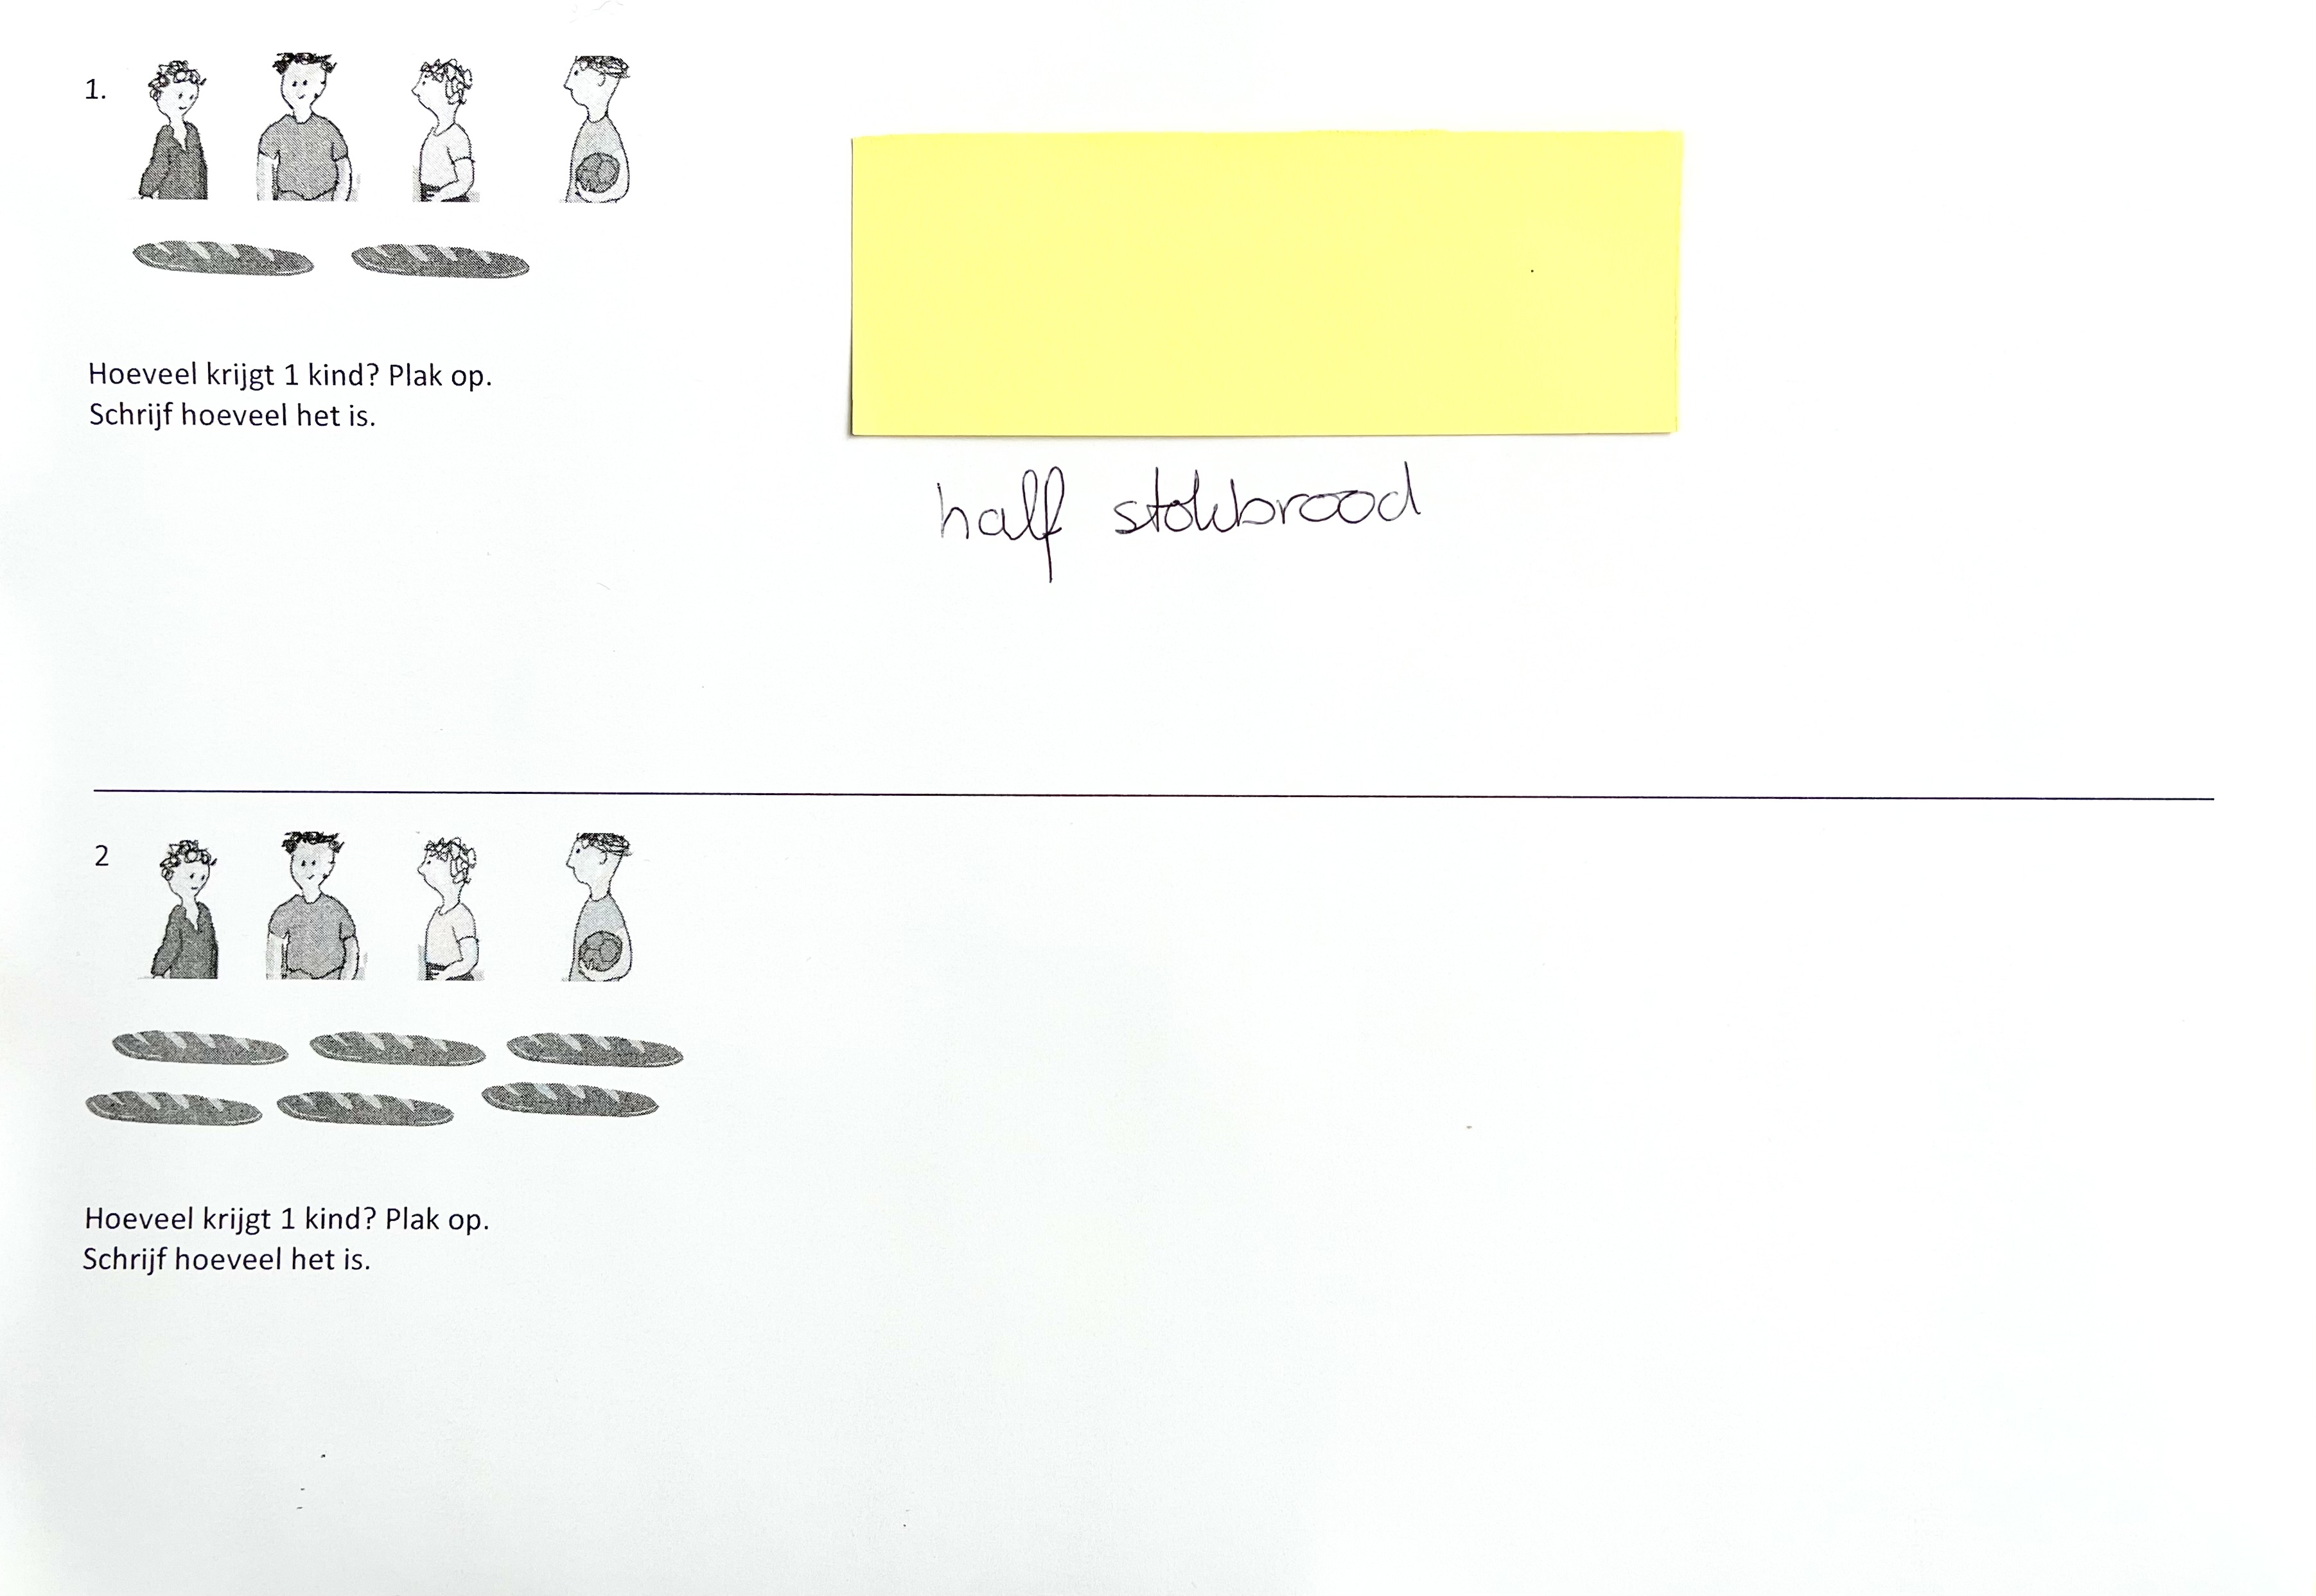 1.
Hoeveel krijgt 1 kind? Plak op.
Schrijf hoeveel het is.
half stokbrood
2
Hoeveel krijgt 1 kind? Plak op.
Schrijf hoeveel het is.